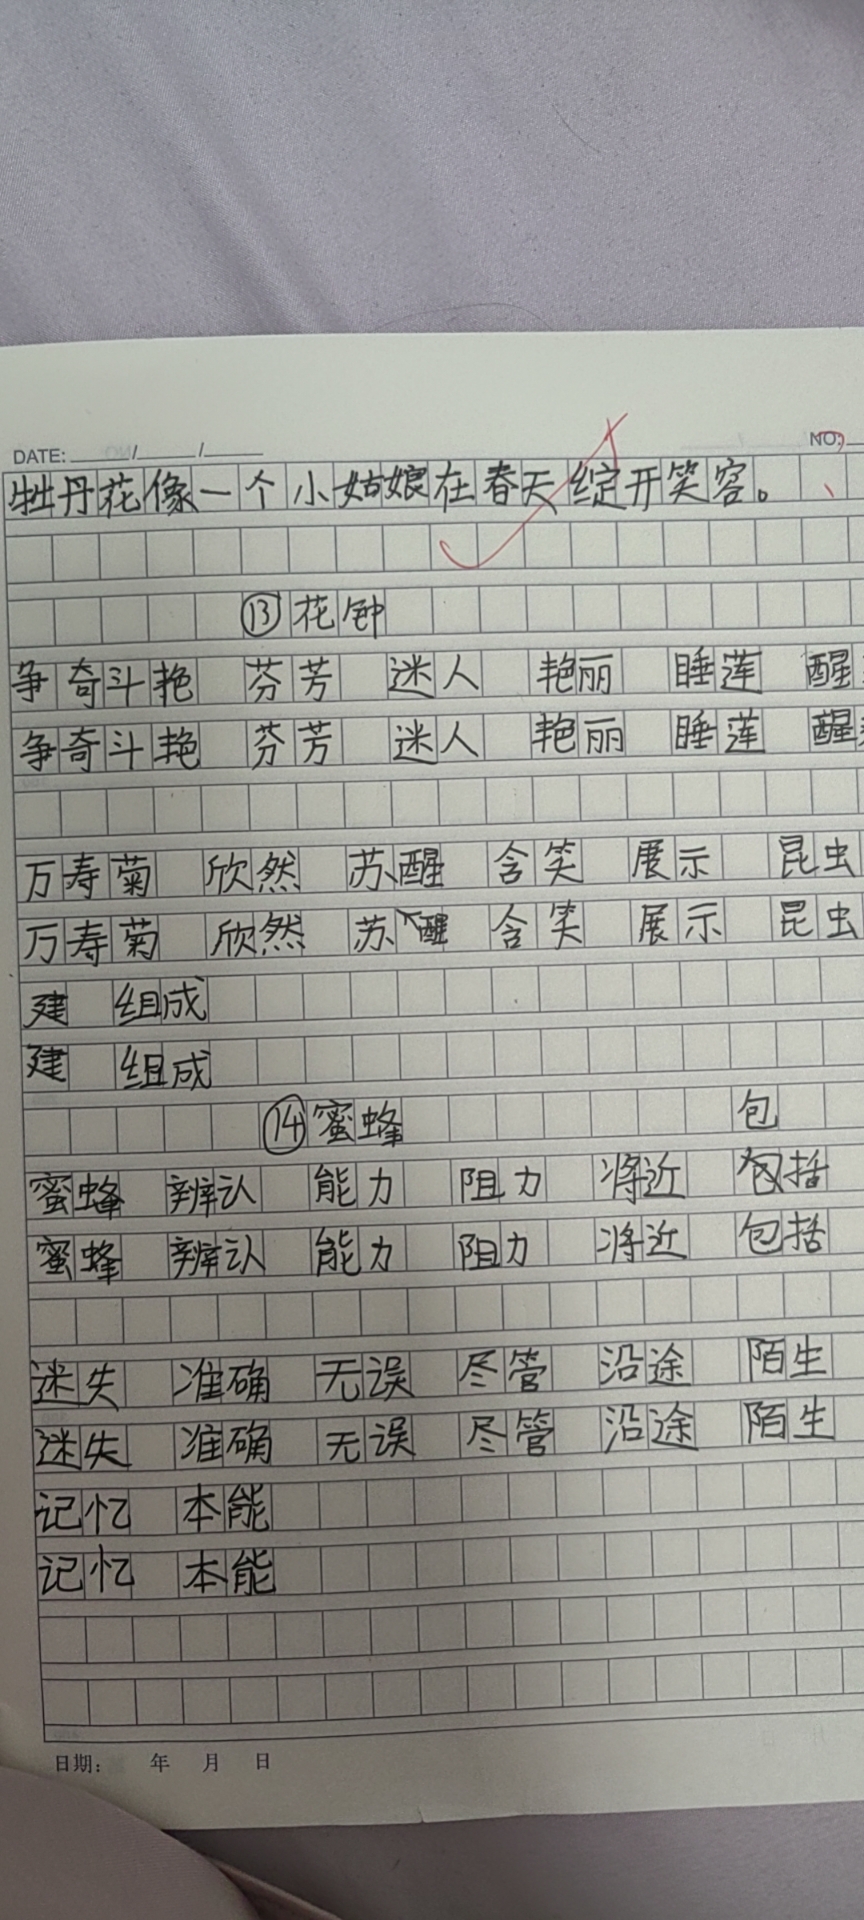 DATE: / / NO:
牡丹花像一个小姑娘在春天绽开笑容。
⑬花钟
争奇斗艳 芬芳 迷人 艳丽 睡莲 醒
争奇斗艳 芬芳 迷人 艳丽 睡莲 醒
万寿菊 欣然 苏醒 含笑 展示 昆虫
万寿菊 欣然 苏醒 含笑 展示 昆虫
建 组成
建 组成
⑭蜜蜂 包
蜜蜂 辨认 能力 阻力 将近 包括
蜜蜂 辨认 能力 阻力 将近 包括
迷失 准确 无误 尽管 沿途 陌生
迷失 准确 无误 尽管 沿途 陌生
记忆 本能
记忆 本能
日期： 年 月 日